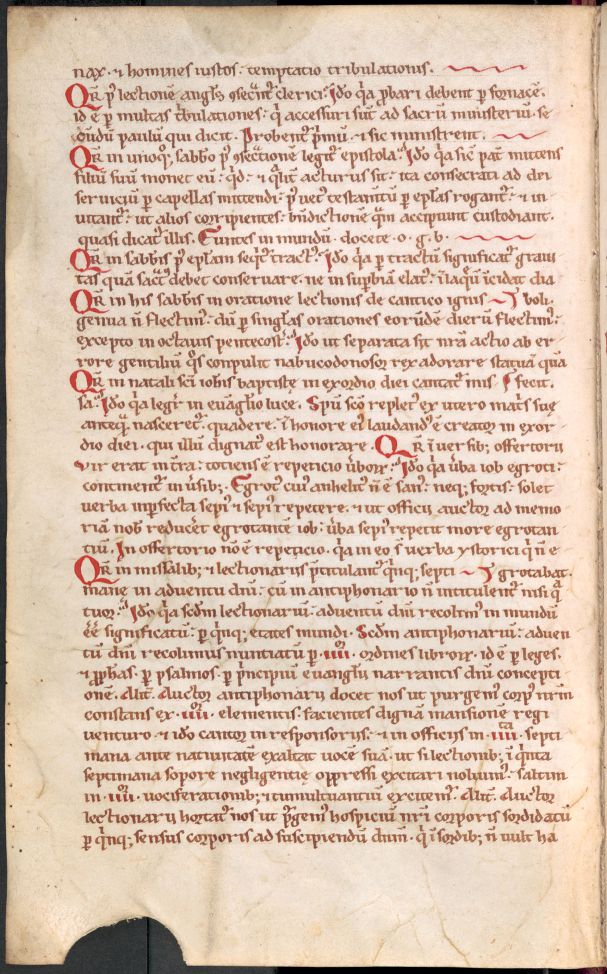 nax · ⁊ homines iustos · temptatio tribulationis .
Qr̄ p̄ lectionē angl̄s ꝯsecᷓnt clerici. Ido qa ꝓbari debent ꝑ fornacē.
id ē ꝑ multas tͥbulationes · q accessuri sūt ad sacrū ministeriū · se
cdūdū paulū qui dicit . Probent p̄mū . ⁊ sic ministrent .
Qr̄ in unoqꝫ sabbo p̄ ꝯsecᷓtionē legit epistola. Ido qa sic pat̄ mittens
filiū suū monet eū · qd · ⁊ qlit acturus sit · ita consecrati ad dei
seruiciū ꝑ capellas mittendi · ꝑ uet testam̄tū ꝑ eplas rogant · ⁊ in
uitant · ut alios corripientes · bn̄dictione quā accipiunt custodiant .
quasi dicat illis . Euntes in mundū . docete · o · g · b ·
Qr̄ in sabbis p̄ eplam seqt tract . Ido qa ꝑ tractū significat graui
tas quā sact debet conseruare · ne in supbiā elat · ī laqū īcidat dia
Qr̄ in his sabbis in oratione lectionis de cantico ignis boli ·
genua n̄ flectim · dū ꝑ singlas orationes eorūdē dierū flectim ·
excepto in octauis pentecost . Ido ut separata sit nr̄a actio ab er
rore gentiliū qs conpulit nabucodonosor rex adorare statuā quā
Qr̄ in natali sci iohis baptiste in exordio diei cantat inis fecit .
sa . Ido qa legr̄ in euāglio luce . Spū scō replet ex utero mat̄s sue
anteq nasceret . quadere · ī honore ei laudand ē creator in exor
dio diei · qui illū dignat est honorare . Qr̄ ī uersibꝫ offertorii
Vir erat in tr̄a · totiens ē repeticio ūborꝝ . Ido qa ūba iob egroti ·
continent in ūsibꝫ . Egrot cui anhelit n̄ ē san · neqꝫ fortis · solet
uerba inꝑfecta sepi ⁊ sepi repetere . ⁊ ut officii auctor ad memo
riā nob reduceret egrotantē iob · ūba sepi repetit more egrotan
tiū . In offertorio nō ē repeticio . qa in eo s̄ uerba ystorici q n̄ e
Qr̄ in missalibꝫ ⁊ lectionariis p̄titulant qnqꝫ septi grotabat .
mane in aduentu dn̄i · cū in antiphonario n̄ intitulent nisi q
tuor . Ido qa scdm lectionariū · aduentū dn̄i recolim in mundū
ēē significatū · ꝑ qnqꝫ etates mundi . Scdm antiphonariū · aduen
tū dn̄i recolimus nuntiatū ꝑ · iiii · ordines librorꝝ · id ē ꝑ leges .
⁊ ꝓphas . ꝑ psalmos . ꝑ p̄ncipiū euanglii narrantis dn̄i concepti
onē . Alit . Auctor antiphonarii docet nos ut purgem corp nr̄m
constans ex · iiii · elementis . facientes dignā mansionē regi
uenturo · ⁊ ido cantor in responsoriis · ⁊ in officiis in · iiii · septi
mana ante natiuitatē exaltat uocē suā . ut si lectionibꝫ ī qnta
septimana sopore negligentie oppressi excitari nolum · saltim
in · iiii · uociferationibꝫ ⁊ tumultuantiū excitem . Alit . Auctor
lectionarii hortat nos ut p̄gem hospiciū nr̄i corporis sordidatū
ꝑ qnqꝫ sensus corporis ad suscipiendū dn̄m . q ī sordibꝫ n̄ uult ha